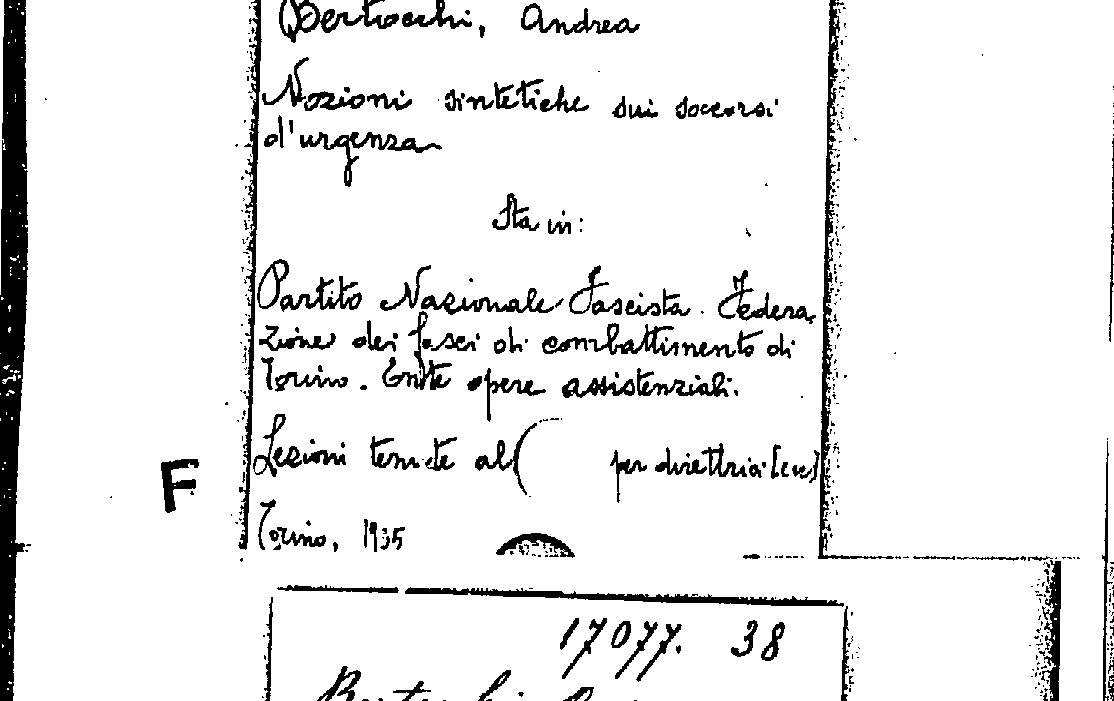 Bertocchi, Andrea
Nozioni sintetiche sui soccorsi
d'urgenza
Sta in:
Partito Nazionale Fascista. Federa-
zione dei fasci di combattimento di
Torino. Ente opere assistenziali.
Lezioni tenute al per direttrici [ecc]
F
Torino, 1935
17077. 38